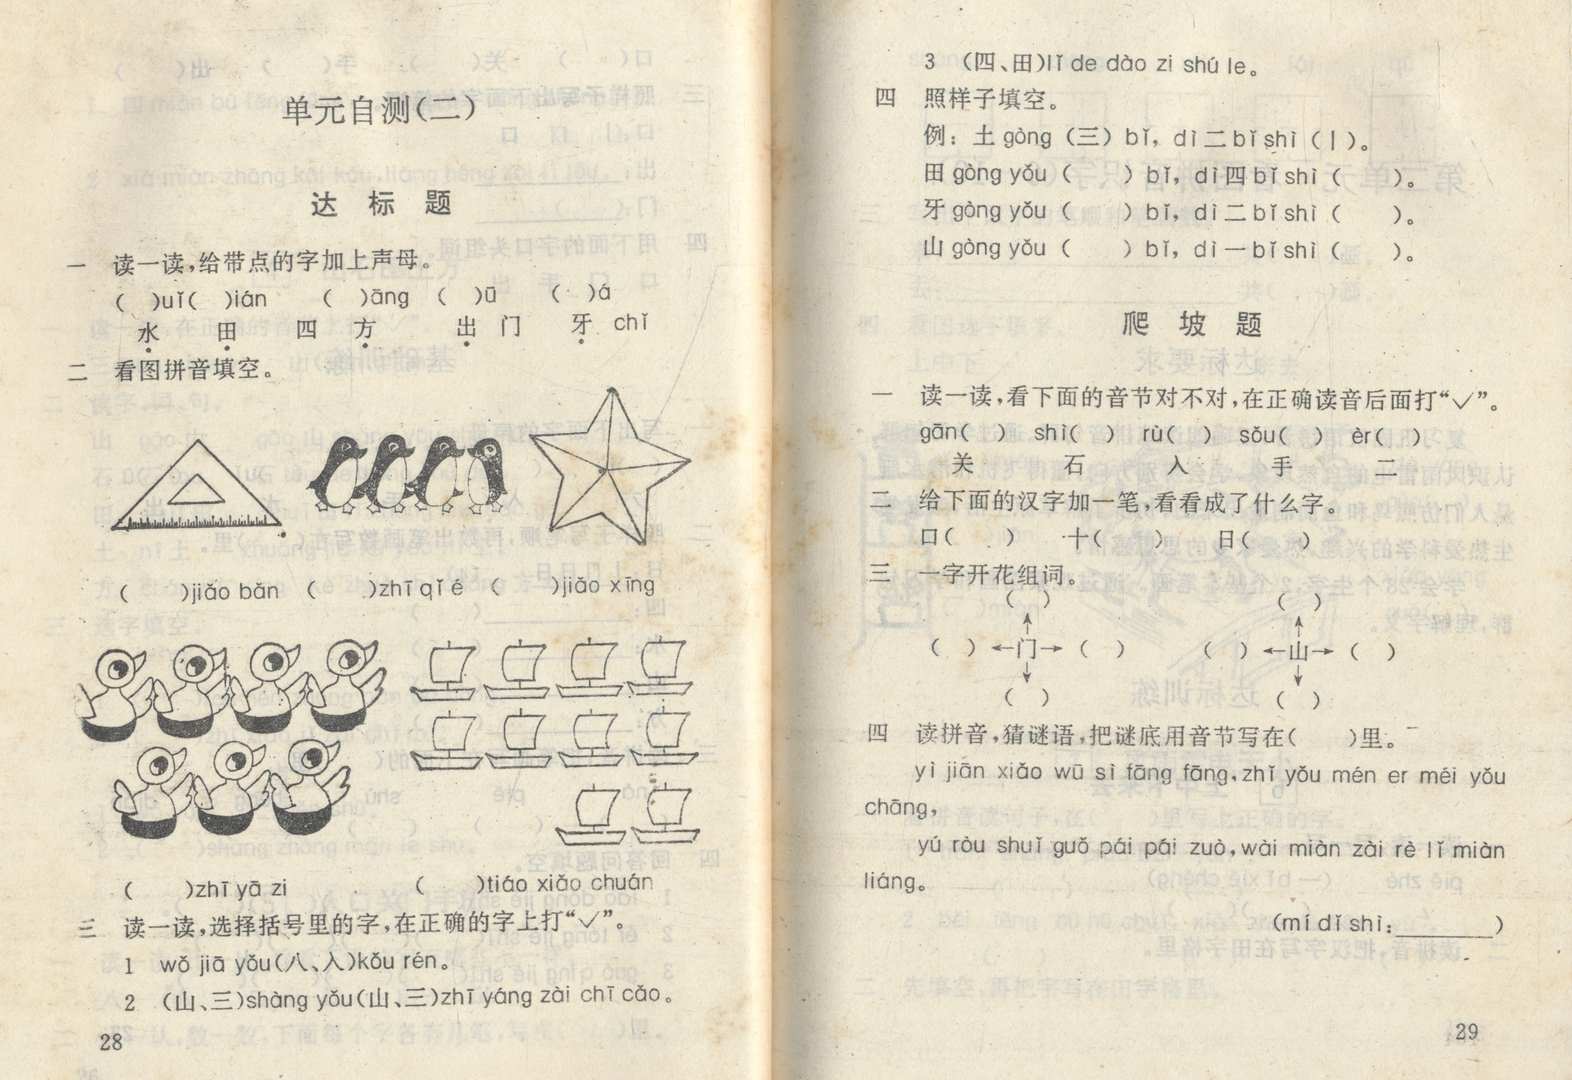 单元自测(二)
达标题
一 读一读,给带点的字加上声母。
( )uǐ( )ián ( )āng ( )ū ( )á
水 田 四 方 出 门 牙 chǐ
二 看图拼音填空。
( )jiǎo bǎn ( )zhī qǐ é ( )jiǎo xīng
( )zhī yā zi ( )tiáo xiǎo chuán
三 读一读,选择括号里的字,在正确的字上打“✓”。
1 wǒ jiā yǒu(八、入)kǒu rén。
2 (山、三)shàng yǒu(山、三)zhī yáng zài chī cǎo。
28
3 (四、田)lǐ de dào zi shú le。
四 照样子填空。
例: 土 gòng (三) bǐ, dì 二 bǐ shì (丨)。
田 gòng yǒu ( ) bǐ, dì 四 bǐ shì ( )。
牙 gòng yǒu ( ) bǐ, dì 二 bǐ shì ( )。
山 gòng yǒu ( ) bǐ, dì 一 bǐ shì ( )。
爬坡题
一 读一读,看下面的音节对不对,在正确读音后面打“✓”。
gān( ) shí( ) rù( ) sǒu( ) èr( )
关 石 入 手 二
二 给下面的汉字加一笔,看看成了什么字。
口( ) 十( ) 日( )
三 一字开花组词。
( ) ( )
( ) ←门→ ( ) ( ) ←山→ ( )
( ) ( )
四 读拼音,猜谜语,把谜底用音节写在( )里。
yì jiān xiǎo wū sì fāng fāng, zhǐ yǒu mén er méi yǒu
chāng,
yú ròu shuǐ guǒ pái pái zuò, wài miàn zài rè lǐ miàn
liáng。
(mí dǐ shì:______)
29